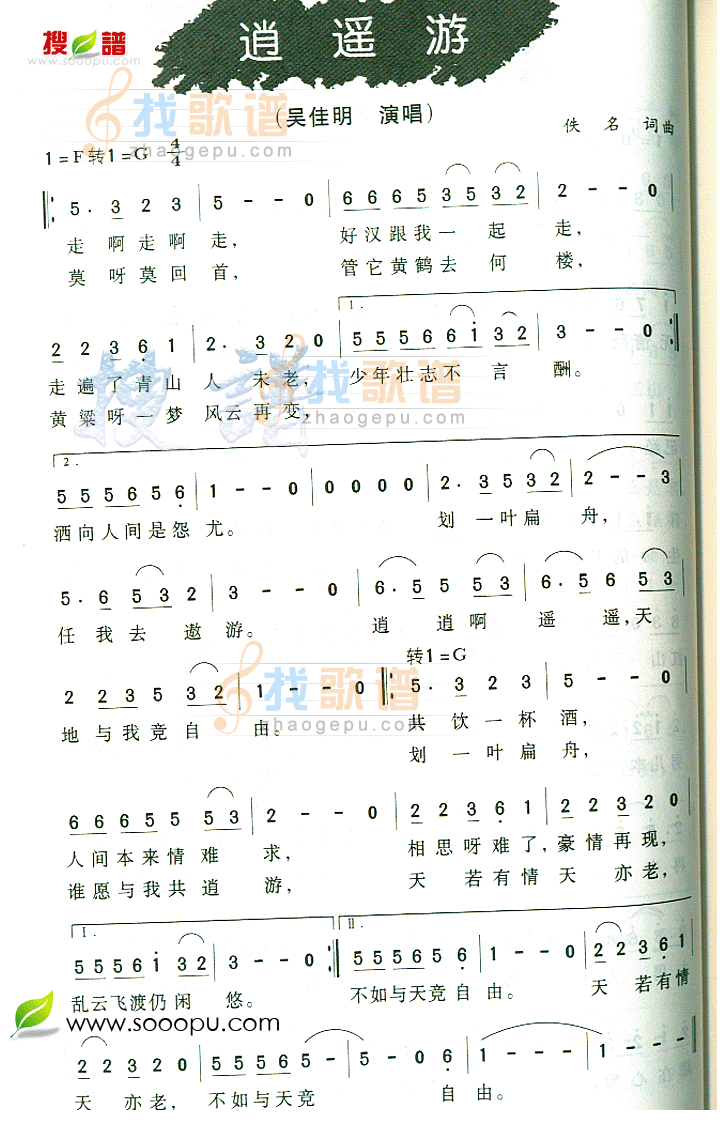 搜谱
www.sooopu.com
逍遥游
(吴佳明 演唱)
佚名 词曲
1=F转1=G 4/4
5. 3 2 3 5 - - 0 6 6 6 5 3 5 3 2 2 - - 0
走 啊走啊 走, 好汉跟我一 起 走,
莫 呀莫回 首, 管它黄鹤去 何 楼,
1.
2 2 3 6 1 2. 3 2 0 5 5 5 6 6 i 3 2 3 - - 0
走遍了青山 人 未老, 少年壮志不 言 酬。
黄梁呀一梦 风云再变,
2.
5 5 5 6 5 6 1 - - 0 0 0 0 0 2. 3 5 3 2 2 - - 3
洒向人间是怨 尤。 划 一叶扁 舟,
5. 6 5 3 2 3 - - 0 6. 5 5 5 3 6. 5 6 5 3
任我去 遨 游。 逍 逍啊 遥 遥,天
转1=G
2 2 3 5 3 2 1 - - 0 5. 3 2 3 5 - - 0
地与我竞自 由。 共 饮一杯 酒,
划 一叶扁 舟,
6 6 6 5 5 5 3 2 - - 0 2 2 3 6 1 2 2 3 2 0
人间本来情难 求, 相思呀难了,豪情再现,
谁愿与我共逍 游, 天 若有情天 亦老,
I. II.
5 5 5 6 i 3 2 3 - - 0 5 5 5 6 5 6 1 - - 0 2 2 3 6 1
乱云飞渡仍闲 悠。 不如与天竞自由。 天 若有情
www.sooopu.com
2 2 3 2 0 5 5 5 6 5 5 - 0 6 1 - - - 1 - - -
天 亦老, 不如与天竞 自由。
找歌谱
zhaogepu.com
找歌谱
zhaogepu.com
找歌谱
zhaogepu.com
搜谱